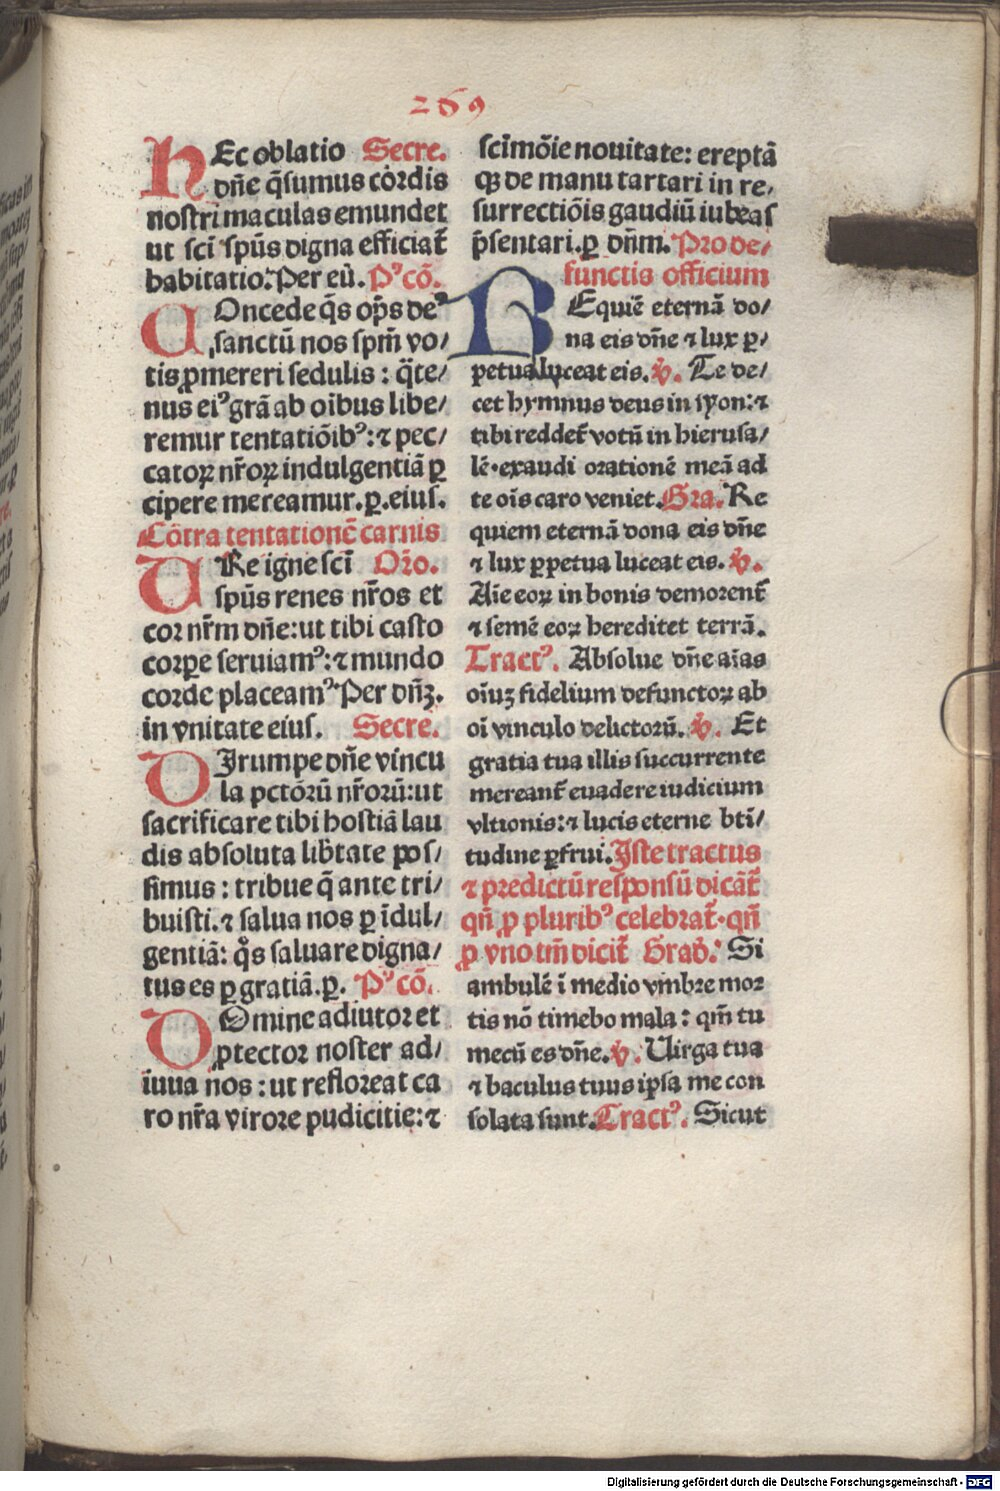 269
HEc oblatio Secre.
dn̄e q̄sumus cordis
nostri maculas emundet
ut sci̅ sp̄us digna efficiat̄
habitatio. Per eū. Pꝰcō.
COncede q̄s op̄s deꝰ
sanctū nos sp̄m vo/
tis ꝓmereri sedulis : q̄te/
nus eiꝰ grā ab oībus libe/
remur tentatiōibꝰ: ⁊ pec/
catoꝝ nr̄oꝝ indulgentiā ꝑ
cipere mereamur. ꝑ. eius.
Cōtra tentationē carnis
URe igne sci̅ Oro̅.
sp̄us renes nr̄os et
cor nr̄m dn̄e: ut tibi casto
corpe seruiamꝰ: ⁊ mundo
corde placeamꝰ Per dn̄ꝫ.
in vnitate eius. Secre.
DIrumpe dn̄e vincu
la pctōrū nr̄orū: ut
sacrificare tibi hostiā lau
dis absoluta lib̄tate pos/
simus : tribue q̄ ante tri/
buisti. ⁊ salua nos ꝑ īdul/
gentiā: q̊s saluare digna/
tus es ꝑ gratiā. ꝑ. Pꝰcō.
DOmine adiutor et
ꝓtector noster ad/
iuua nos : ut refloreat ca
ro nr̄a virore pudicitie: ⁊
sci̅mōie nouitate: ereptā
qꝫ de manu tartari in re/
surrectiōis gaudiū iubeas
p̄sentari. ꝑ dn̄m. Pro de/
functis officium
REquiē eternā do/
na eis dn̄e ⁊ lux ꝑ/
petua luceat eis. ℣. Te de/
cet hymnus deus in syon: ⁊
tibi reddet̄ votū in hierusa/
lē. exaudi orationē meā ad
te ois̄ caro veniet. Gra. Re
quiem eternā dona eis dn̄e
⁊ lux ꝑpetua luceat eis. ℣.
Aīe eoꝝ in bonis demorent̄
⁊ semē eoꝝ hereditet terrā.
Tractꝰ. Absolue dn̄e aīas
oīuꝫ fidelium defunctoꝝ ab
oī vinculo delictorū. ℣. Et
gratia tua illis succurrente
mereant̄ euadere iudicium
vltionis: ⁊ lucis eterne bti̅/
tudine ꝑfrui. Iste tractus
⁊ predictū responsū dicāt̄
qn̄ ꝓ pluribꝰ celebrat̄. qn̄
ꝓ vno tm̄ dicit̄ Grad̄. Si
ambulē ī medio vmbre mor
tis nō timebo mala : qm̄ tu
mecū es dn̄e. ℣. Uirga tua
⁊ baculus tuus ipsa me con
solata sunt. Tractꝰ. Sicut
Digitalisierung gefördert durch die Deutsche Forschungsgemeinschaft - DFG